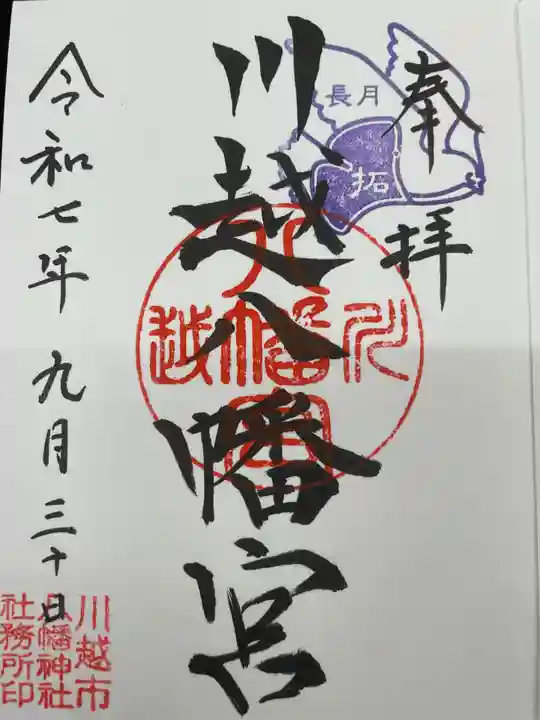 奉拝
長月
拓
川越八幡宮
川越八幡宮
令和七年 九月三十日
川越市
八幡神社
社務所印